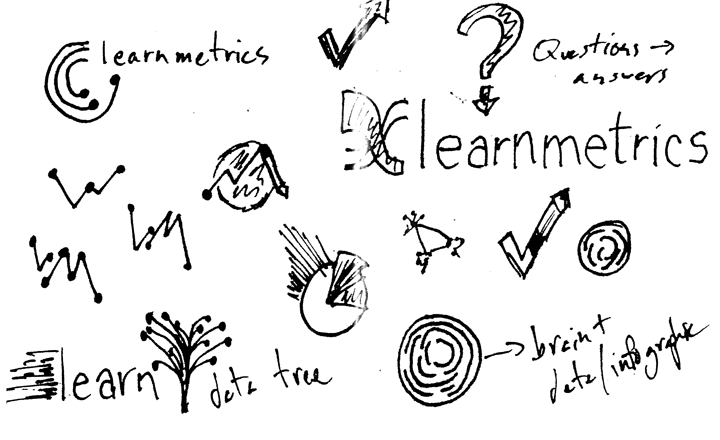 learnmetrics
Questions →
answers
learnmetrics
learn
data tree
→ brain +
data/infographic